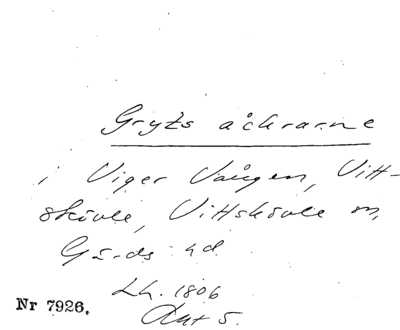 Gryts åckrarne
i Viger Vången, Vitt-
skövle, Vittskövle sn,
Gärds hd.
Lh. 1806
Akt 5.
Nr 7926.